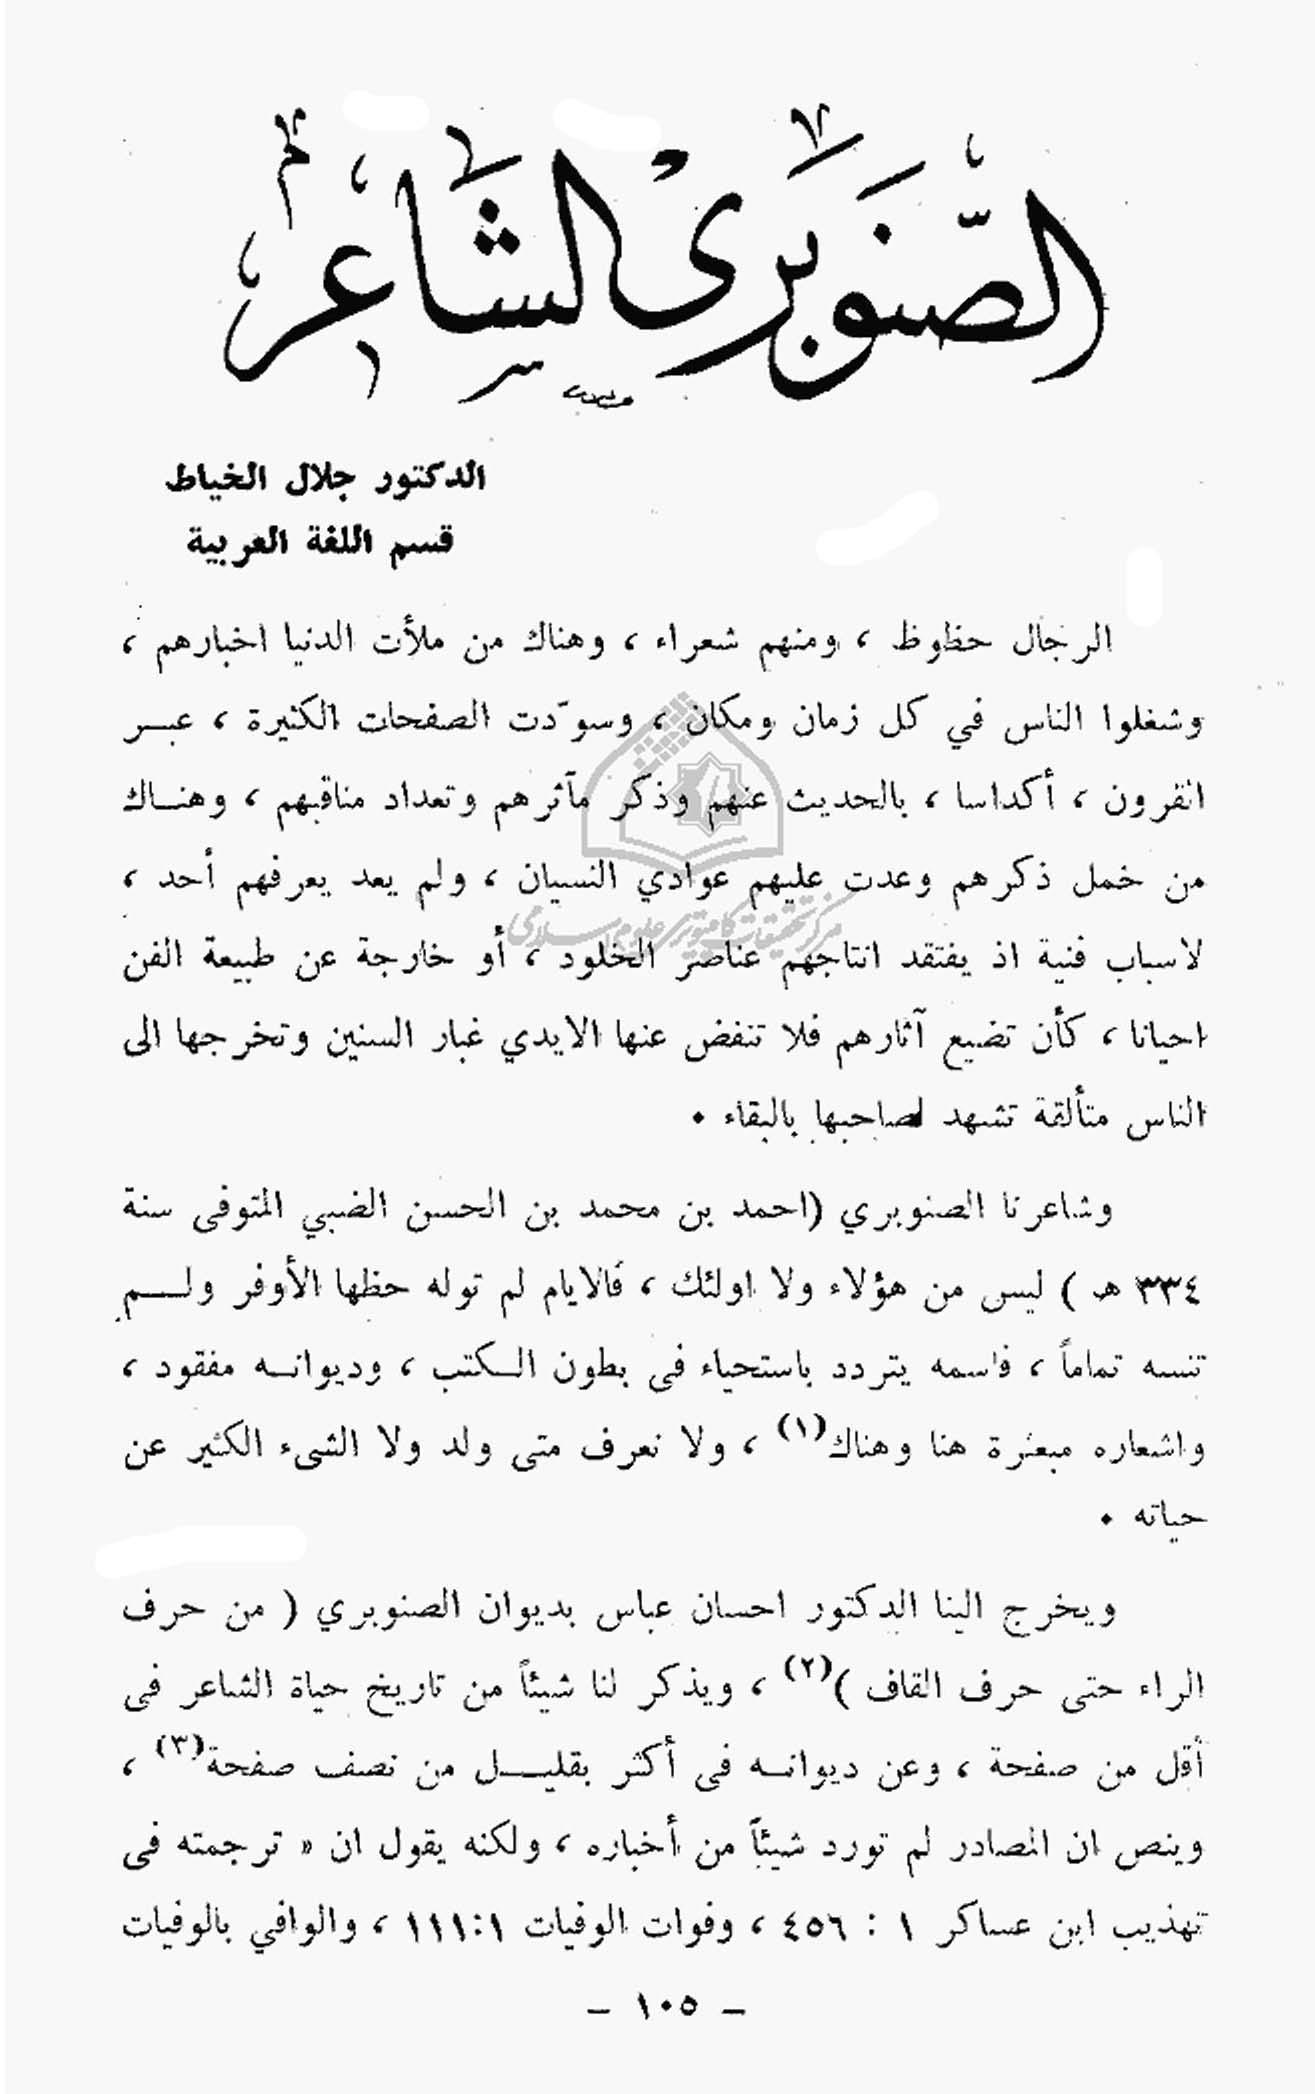 الصَّنَوبَرى الشَّاعر
الدكتور جلال الخياط
قسم اللغة العربية
الرجال حظوظ ، ومنهم شعراء ، وهناك من ملأت الدنيا اخبارهم ،
وشغلوا الناس في كل زمان ومكان ، وسوّدت الصفحات الكثيرة ، عبـر
القرون ، أكداسا ، بالحديث عنهم وذكر مآثرهم وتعداد مناقبهم ، وهنـاك
من خمل ذكرهم وعدت عليهم عوادي النسيان ، ولم يعد يعرفهم أحد ،
لاسباب فنية اذ يفتقد انتاجهم عناصر الخلود ، أو خارجة عن طبيعة الفن
احيانا ، كأن تضيع آثارهم فلا تنفض عنها الايدي غبار السنين وتخرجها الى
الناس متألقة تشهد لصاحبها بالبقاء ٠
وشاعرنا الصنوبري (احمد بن محمد بن الحسن الضبي المتوفى سنة
٣٣٤ هـ ) ليس من هؤلاء ولا اولئك ، فالايام لم توله حظها الأوفر ولـــم
تنسه تماماً ، فاسمه يتردد باستحياء فى بطون الـكتب ، وديوانـه مفقود ،
واشعاره مبعثرة هنا وهناك(١) ، ولا نعرف متى ولد ولا الشىء الكثير عن
حياته ٠
ويخرج الينا الدكتور احسان عباس بديوان الصنوبري ( من حرف
الراء حتى حرف القاف )(٢) ، ويذكر لنا شيئاً من تاريخ حياة الشاعر فى
أقل من صفحة ، وعن ديوانـه فى أكثر بقليـــل من نصف صفحة(٣) ،
وينص ان المصادر لم تورد شيئاً من أخباره ، ولكنه يقول ان « ترجمته فى
تهذيب ابن عساكر ١ : ٤٥٦ ، وفوات الوفيات ١:١١١ ، والوافي بالوفيات
مركز تحقيقات كامپيوتری علوم اسلامی
– ١٠٥ –